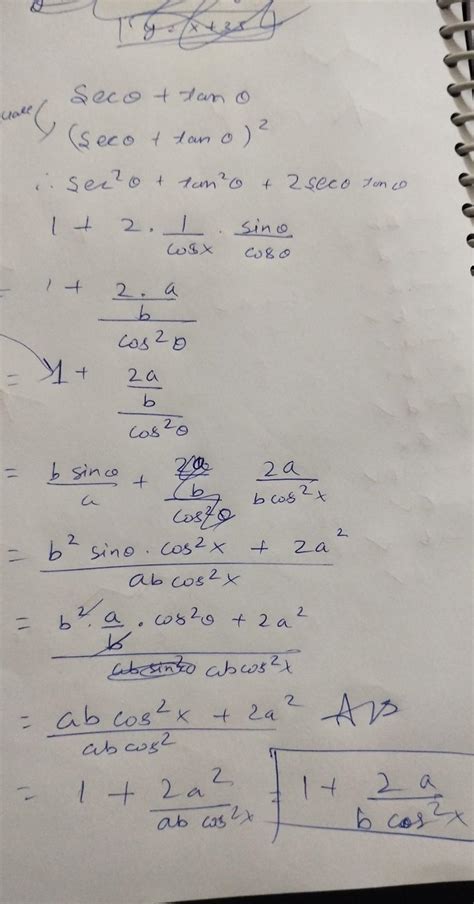 y = (x + 35)
secθ + tanθ
(secθ + tanθ)²
∴ sec²θ + tan²θ + 2secθ tanθ
1 + 2 · 1/cosx · sinθ/cosθ
= 1 + (2·a/b)/cos²θ
= 1 + (2a/b)/cos²θ
= b sinθ/a + (2a/b)/cos²θ 2a/bcos²x
= (b² sinθ · cos²x + 2a²)/(ab cos²x)
= (b² · a/b · cos²θ + 2a²)/(ab sin²θ abcos²x)
= (ab cos²x + 2a²)/(ab cos²) Ans
= 1 + 2a²/(ab cos²x) = 1 + 2a/(b cos²x)